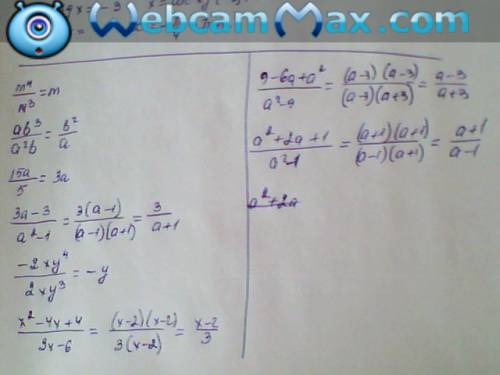 WebcamMax.com
m⁴/m³ = m
ab³/a²b = b²/a
15a/5 = 3a
3a-3/a²-1 = 3(a-1)/(a-1)(a+1) = 3/a+1
-2xy⁴/2xy³ = -y
x²-4x+4/3x-6 = (x-2)(x-2)/3(x-2) = x-2/3
9-6a+a²/a²-9 = (a-3)(a-3)/(a-3)(a+3) = a-3/a+3
a²+2a+1/a²-1 = (a+1)(a+1)/(a-1)(a+1) = a+1/a-1
a²+2a